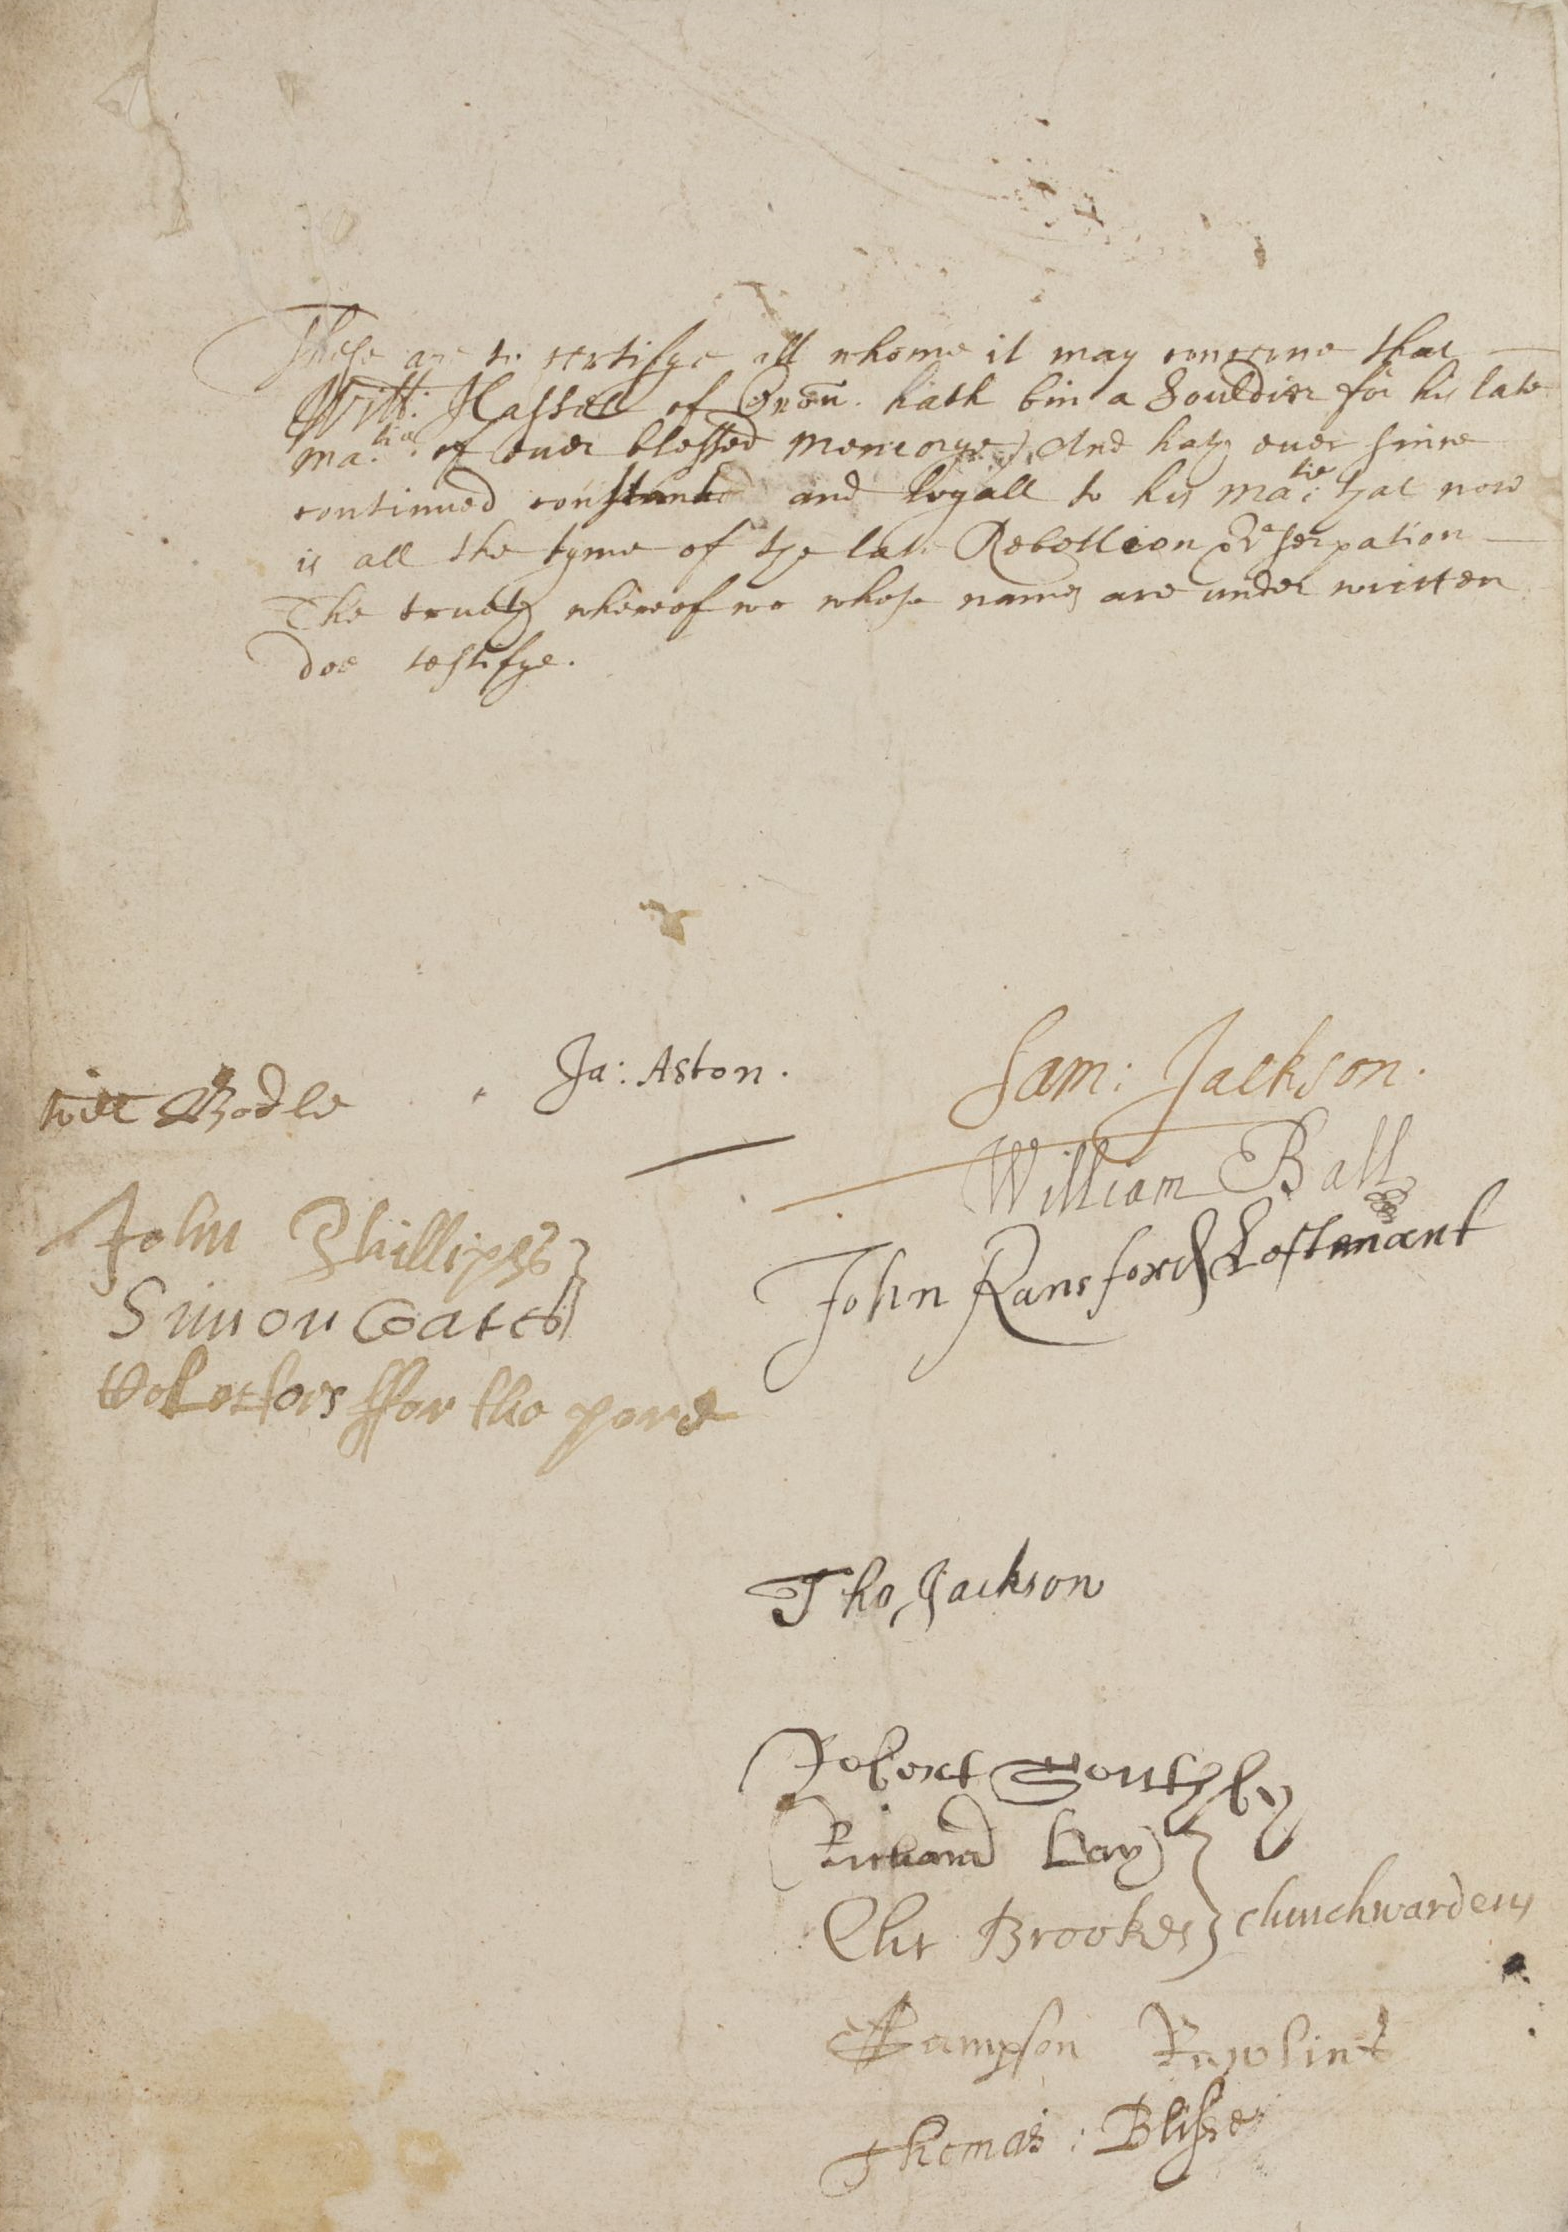 These are to certifye all whome it may concerne that
Will: Hassell of hath bin a Souldier for his late
Ma:tie of ever blessed memorye) And hath ever since
continued constant and loyall to his Ma:tie that now
is all the tyme of the late Rebellion & Userpation
The truth whereof we whose names are under written
doe testifye.
Will Bodle
Ja: Aston.
Sam: Jackson.
William Ball
John Ransford Leftenant
John Phillipps
Simon Coates
Colectors ffor the pore
Tho Jackson
Robert Southby
Richard Day
Chr Brookes churchwardens
Sampson Rawlins
Thomas: Blisse